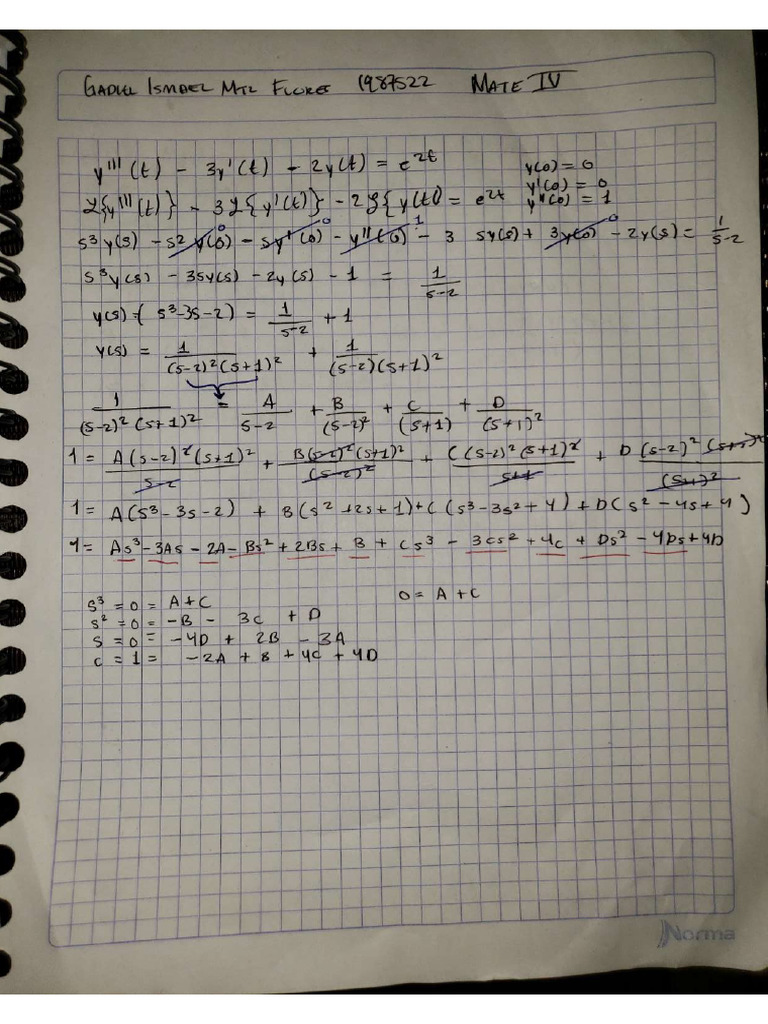 GADIEL ISMAEL MTZ FLORES 1987522 MATE IV
y'''(t) - 3y'(t) - 2y(t) = e^2t y(0) = 0
y'(0) = 0
ℒ{y'''(t)} - 3ℒ{y'(t)} - 2ℒ{y(t) = e^2t y''(0) = 1
s³y(s) - s²y(0) 0 - sy'(0) 0 - y''(0) 1 - 3 sy(s) + 3y(0) 0 - 2y(s) = 1/s-2
s³y(s) - 3sy(s) - 2y(s) - 1 = 1/s-2
y(s) = ( s³-3s-2) = 1/s-2 + 1
y(s) = 1/(s-2)²(s+1)² + 1/(s-2)(s+1)²
1/(s-2)²(s+1)² = A/s-2 + B/(s-2)² + C/(s+1) + D/(s+1)²
1 = A(s-2)²(s+1)²/s-2 + B(s-2)²(s+1)²/(s-2)² + C(s-2)²(s+1)²/s+1 + D(s-2)²(s+1)²/(s+1)²
1 = A(s³-3s-2) + B(s²+2s+1)+C(s³-3s²+4)+D(s²-4s+4)
1= As³-3As-2A-Bs²+2Bs+B+Cs³-3Cs²+4C+Ds²-4Ds+4D
s³=0= A+C 0= A+C
s²=0= -B - 3C + D
s=0= -4D + 2B - 3A
c=1= -2A + B + 4C + 4D
Norma